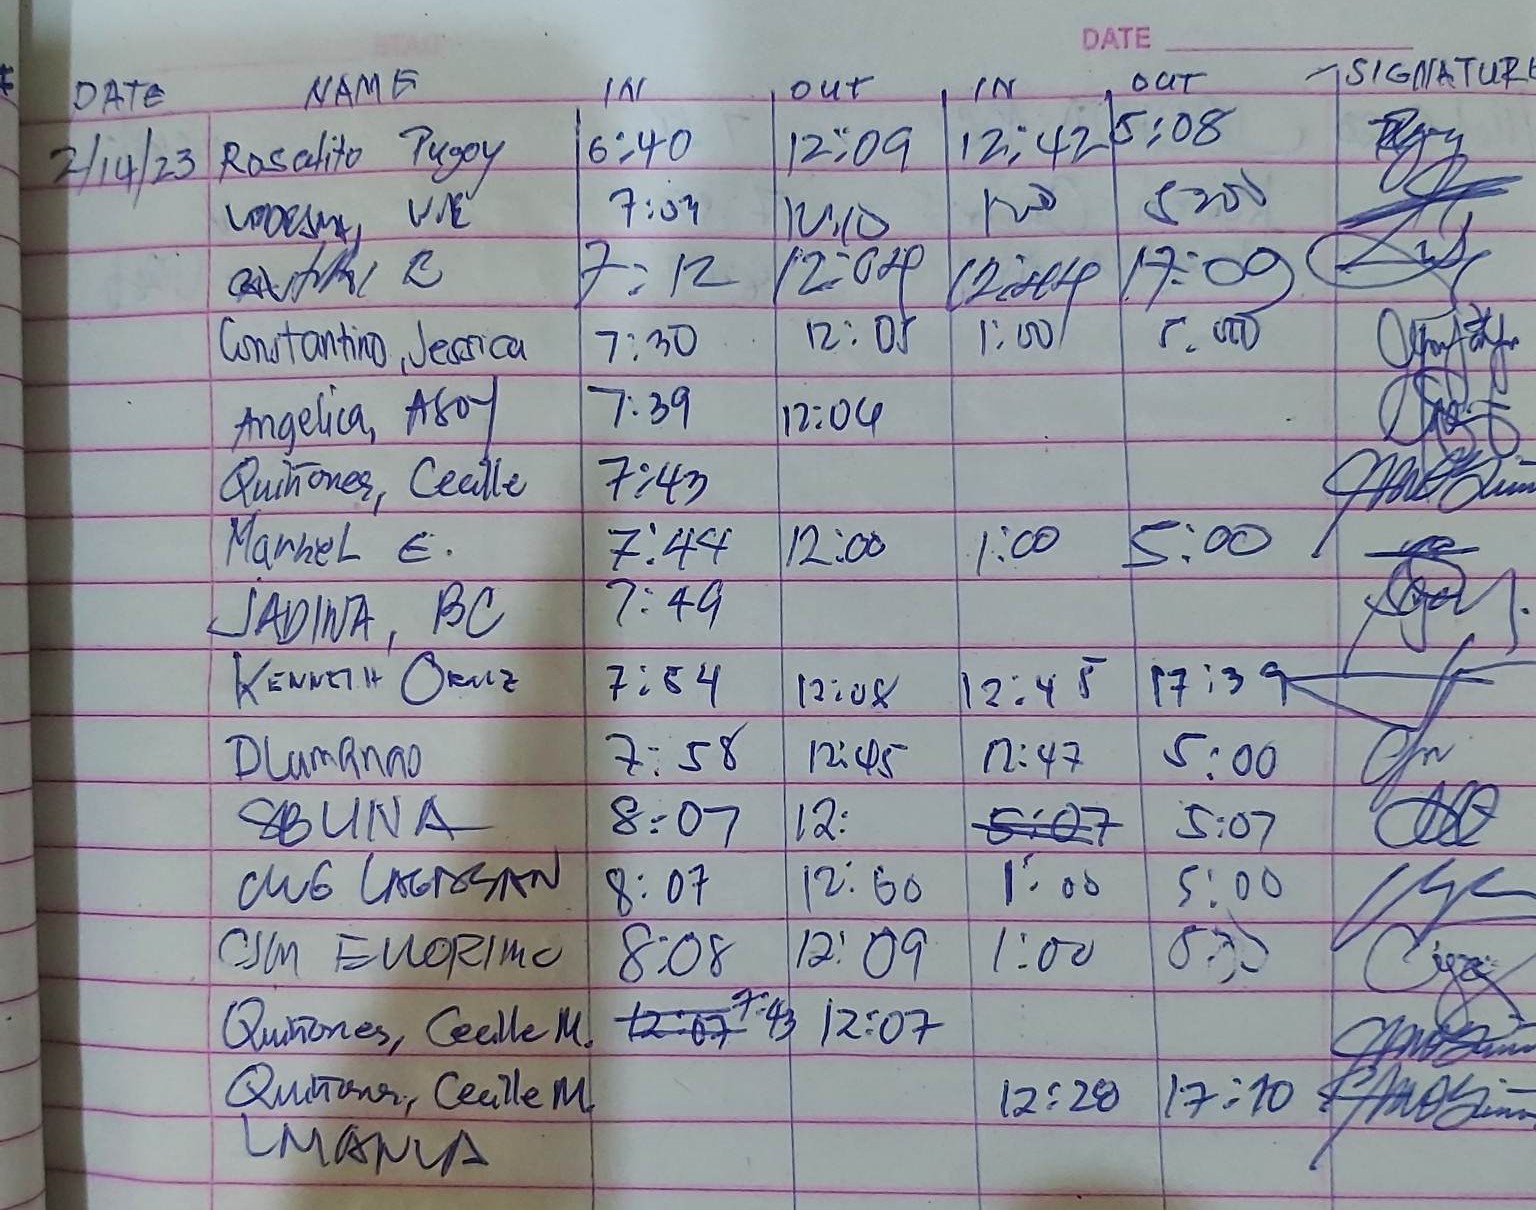 DATE
DATE NAME IN OUT IN OUT SIGNATURE
2/14/23 Rosalito Pugoy 6:40 12:09 12:42 5:08
7:04 12:10
7:12 12:04 17:09
Constantino, Jessica 7:30 12:05 1:00 5:00
Angelica, Asoy 7:39 12:04
Quiñones, Cecille 7:43
Manuel E. 7:44 12:00 1:00 5:00
JADINA, BC 7:49
KENNETH 7:54 12:08 12:45 17:39
DLumanao 7:58 12:45 12:47 5:00
SBUNA 8:07 12: 5:07 5:07
8:07 12:00 1:00 5:00
CJM 8:08 12:09 1:00
Quiñones, Cecille M. 12:07 7:43 12:07
Quiñones, Cecille M. 12:28 17:10